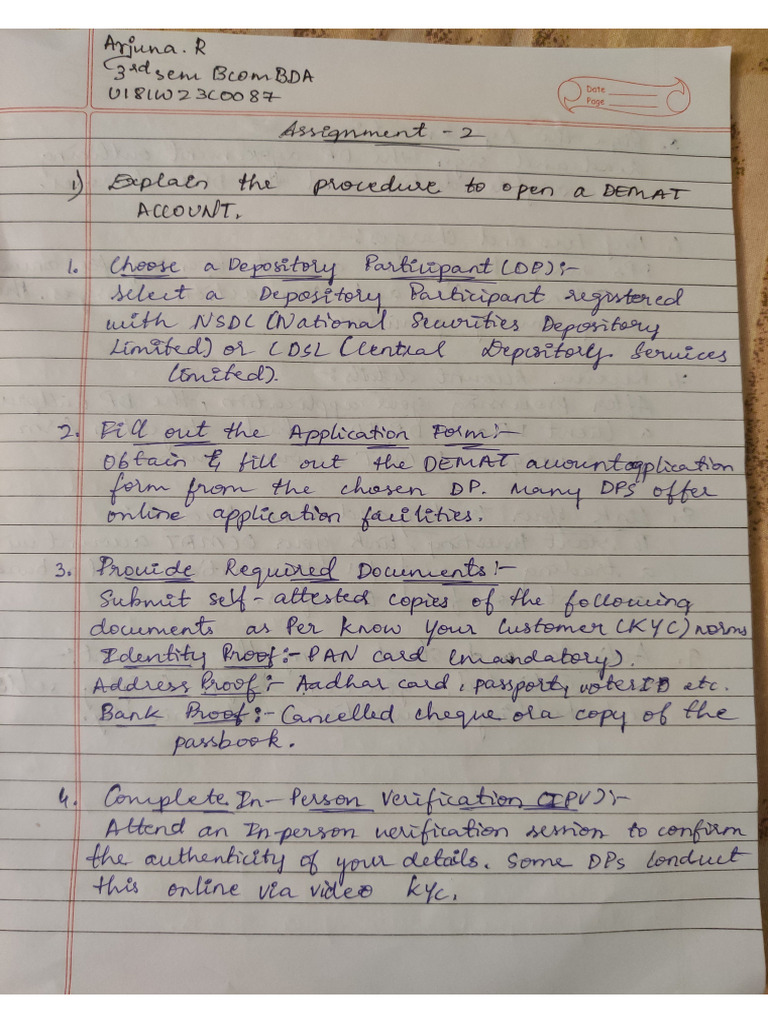 Arjuna. R
3rd sem Bcom BDA
U18IW23C0087
Date
Page
Assignment - 2
1) Explain the procedure to open a DEMAT
ACCOUNT.
1. Choose a Depository Participant (DP):-
Select a Depository Participant registered
with NSDL (National Securities Depository
Limited) or CDSL (Central Depository Services
Limited).
2. Fill out the Application Form:-
Obtain & fill out the DEMAT account application
form from the chosen DP. Many DPs offer
online application facilities.
3. Provide Required Documents:-
Submit self-attested copies of the following
documents as per know your Customer (KYC) norms
Identity Proof:- PAN card (mandatory).
Address Proof:- Aadhar card, passport, voter ID etc.
Bank Proof:- Cancelled cheque or a copy of the
passbook.
4. Complete In-Person Verification (IPV):-
Attend an In-person verification session to confirm
the authenticity of your details. Some DPs conduct
this online via video KYC.